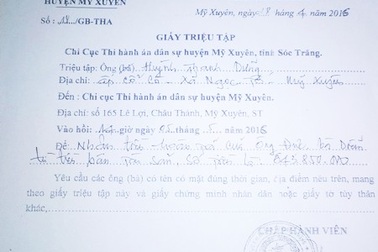 HUYỆN MỸ XUYÊN
Số: 18/GB-THA
Mỹ Xuyên, ngày 28 tháng 4 năm 2016
GIẤY TRIỆU TẬP
Chi Cục Thi hành án dân sự huyện Mỹ Xuyên, tỉnh Sóc Trăng.
Triệu tập: Ông (bà) Huỳnh Thanh Dũng
Địa chỉ: ấp Cổ Cò - xã Ngọc Tố - Mỹ Xuyên
Đến: Chi cục Thi hành án dân sự huyện Mỹ Xuyên.
Địa chỉ: số 165 Lê Lợi, Châu Thành, Mỹ Xuyên, ST
Vào hồi giờ ngày 2016
Để: Nhận tiền
tiền bán tài sản, số tiền là 843.850.000
Yêu cầu các ông (bà) có tên có mặt đúng thời gian, địa điểm nêu trên, mang
theo giấy triệu tập này và giấy chứng minh nhân dân hoặc giấy tờ tùy thân
khác,
CHẤP HÀNH VIÊN